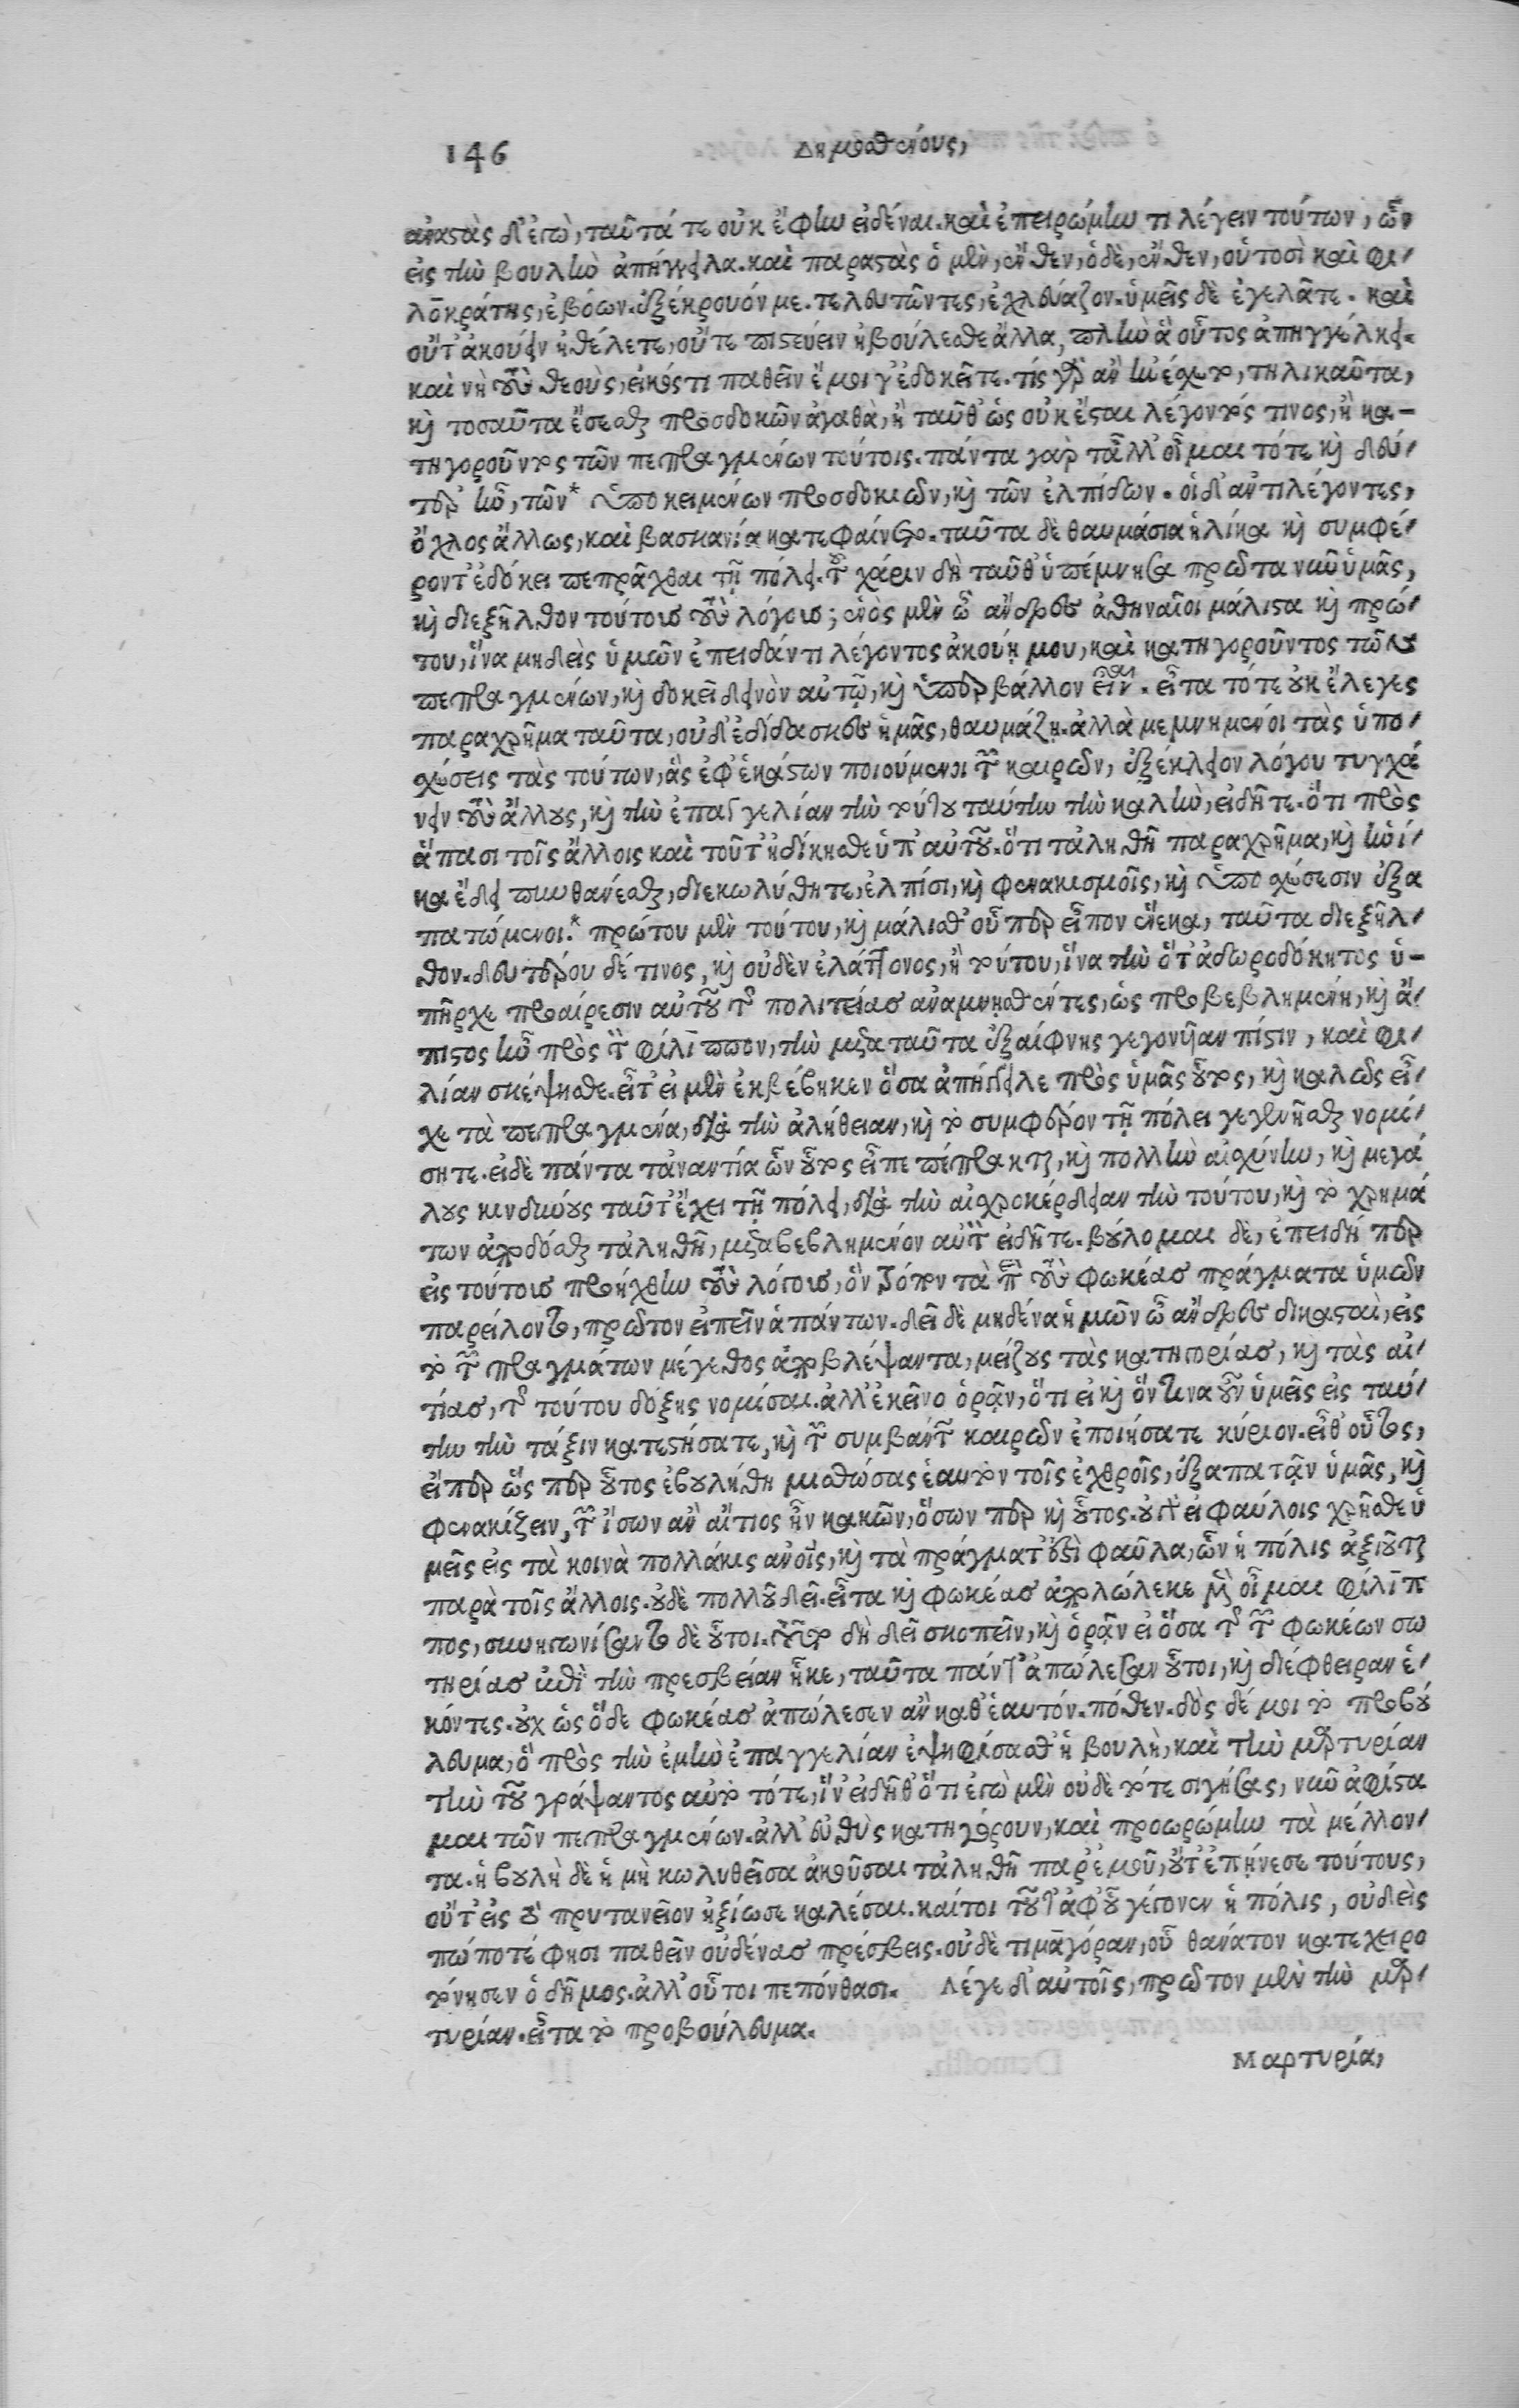 146 Δημοσθένους,
ἀναστὰς δ' ἐγὼ, ταῦτά τε οὐκ ἔφην εἰδέναι. καὶ ἐπειρώμην τι λέγειν τούτων, ὧν
εἰς τὴν βουλὴν ἀπήγγειλα. καὶ παραστὰς ὁ μὲν, ἔνθεν, ὁ δὲ, ἔνθεν, οὑτοσὶ καὶ φι-
λοκράτης, ἐβόων. ἐξέκρουόν με. τελευτῶντες, ἐχλεύαζον. ὑμεῖς δὲ ἐγελᾶτε. καὶ
οὔτ' ἀκούειν ἠθέλετε, οὔτε πιστεύειν ἠβούλεσθε ἄλλα, πλὴν ἃ οὗτος ἀπηγγέλκει.
καὶ νὴ τοὺς θεοὺς, εἰκός τι παθεῖν ἔμοιγ' ἐδοκεῖτε. τίς γὰρ ἂν ἠνέσχετο, τηλικαῦτα,
καὶ τοσαῦτα ἔσεσθαι προσδοκῶν ἀγαθὰ, ἢ ταῦθ' ὡς οὐκ ἔσται λέγοντός τινος, ἢ κα-
τηγοροῦντος τῶν πεπραγμένων τούτοις. πάντα γὰρ τἆλλ' οἶμαι τότε καὶ δεύ-
τερ' ἦν, τῶν* ὑποκειμένων προσδοκιῶν, καὶ τῶν ἐλπίδων. οἱ δ' ἀντιλέγοντες,
ὄχλος ἄλλως, καὶ βασκανία κατεφαίνετο. ταῦτα δὲ θαυμάσια ἡλίκα καὶ συμφέ-
ροντ' ἐδόκει πεπρᾶχθαι τῇ πόλει. τοῦ χάριν δὴ ταῦθ' ὑπέμνησα πρῶτα νῦν ὑμᾶς,
καὶ διεξῆλθον τούτους τοὺς λόγους; ἑνὸς μὲν ὦ ἄνδρες ἀθηναῖοι μάλιστα καὶ πρώ-
του, ἵνα μηδεὶς ὑμῶν ἐπειδάν τι λέγοντος ἀκούῃ μου, καὶ κατηγοροῦντος τῶν
πεπραγμένων, καὶ δοκεῖ δεινὸν αὐτῷ, καὶ ὑπερβάλλον εἶναι. εἶτα τότε οὐκ ἔλεγες
παραχρῆμα ταῦτα, οὐδ' ἐδίδασκες ἡμᾶς, θαυμάζῃ. ἀλλὰ μεμνημένοι τὰς ὑπο-
σχέσεις τὰς τούτων, ἃς ἐφ' ἑκάστων ποιούμενοι τῶν καιρῶν, ἐξέκλειον λόγου τυγχά
νειν τοὺς ἄλλους, καὶ τὴν ἐπαγγελίαν τὴν τούτου ταύτην τὴν καλὴν, εἰδῆτε. ὅτι πρὸς
ἅπασι τοῖς ἄλλοις καὶ τοῦτ' ἠδίκησθε ὑπ' αὐτοῦ. ὅτι τἀληθῆ παραχρῆμα, καὶ ἡνί-
κα ἔδει πυνθανέσθαι, διεκωλύθητε, ἐλπίσι, καὶ φενακισμοῖς, καὶ ὑποσχέσεσιν ἐξα
πατώμενοι.* πρώτου μὲν τούτου, καὶ μάλισθ' οὗπερ εἶπον ἕνεκα, ταῦτα διεξῆλ-
θον. δευτέρου δέ τινος, καὶ οὐδὲν ἐλάττονος, ἢ τούτου, ἵνα τὴν ὅτ' ἀδωροδόκητος ὑ-
πῆρχε προαίρεσιν αὐτοῦ τῆς πολιτείας ἀναμνησθέντες, ὡς προβεβλημένη, καὶ ἄ-
πιστος ἦν πρὸς τὸν φίλιππον, τὴν μετὰ ταῦτα ἐξαίφνης γεγονυῖαν πίστιν, καὶ φι-
λίαν σκέψησθε. εἶτ' εἰ μὲν ἐκβέβηκεν ὅσα ἀπήγγειλε πρὸς ὑμᾶς οὗτος, καὶ καλῶς εἶ-
χε τὰ πεπραγμένα, διὰ τὴν ἀλήθειαν, καὶ τὸ συμφέρον τῇ πόλει γεγενῆσθαι νομί-
σητε. εἰ δὲ πάντα τἀναντία ὧν οὗτος εἶπε πέπρακται, καὶ πολλὴν αἰσχύνην, καὶ μεγά
λους κινδύνους ταῦτ' ἔχει τῇ πόλει, διὰ τὴν αἰσχροκέρδειαν τὴν τούτου, καὶ τὸ χρημά
των ἀποδόσθαι τἀληθῆ, μεταβεβλημένον αὐτὸν εἰδῆτε. βούλομαι δὲ, ἐπειδή περ
εἰς τούτους προήχθην τοὺς λόγους, ὃν τρόπον τὰ περὶ τοὺς φωκέας πράγματα ὑμῶν
παρείλοντο, πρῶτον εἰπεῖν ἁπάντων. δεῖ δὲ μηδένα ἡμῶν ὦ ἄνδρες δικασταὶ, εἰς
τὸ τῶν πραγμάτων μέγεθος ἀποβλέψαντα, μείζους τὰς κατηγορίας, καὶ τὰς αἰ-
τίας, τῆς τούτου δόξης νομίσαι. ἀλλ' ἐκεῖνο ὁρᾷν, ὅτι εἰ καὶ ὅντινα οὖν ὑμεῖς εἰς ταύ-
την τὴν τάξιν κατεστήσατε, καὶ τῶν συμβάντων καιρῶν ἐποιήσατε κύριον. εἶθ' οὗτος,
εἴπερ ὥσπερ οὗτος ἐβουλήθη μισθώσας ἑαυτὸν τοῖς ἐχθροῖς, ἐξαπατᾷν ὑμᾶς, καὶ
φενακίζειν, τῶν ἴσων ἂν αἴτιος ἦν κακῶν, ὅσων περ καὶ οὗτος. οὐ γὰρ εἰ φαύλοις χρῆσθε ὑ
μεῖς εἰς τὰ κοινὰ πολλάκις ἀνοῖς, καὶ τὰ πράγματ' ἐστὶ φαῦλα, ὧν ἡ πόλις ἀξιοῦται
παρὰ τοῖς ἄλλοις. οὐδὲ πολλοῦ δεῖ. εἶτα καὶ φωκέας ἀπολώλεκε μὲν οἶμαι φίλιπ
πος, συνηγωνίσαντο δὲ οὗτοι. τοῦτο δὴ δεῖ σκοπεῖν, καὶ ὁρᾷν εἰ ὅσα τῆς τῶν φωκέων σω
τηρίας ἐπὶ τὴν πρεσβείαν ἧκε, ταῦτα πάντ' ἀπώλεσαν οὗτοι, καὶ διέφθειραν ἑ-
κόντες. οὐχ ὡς ὅδε φωκέας ἀπώλεσεν ἂν καθ' ἑαυτόν. πόθεν. δὸς δέ μοι τὸ προβού
λευμα, ὃ πρὸς τὴν ἐμὴν ἐπαγγελίαν ἐψηφίσαθ' ἡ βουλὴ, καὶ τὴν μαρτυρίαν
τὴν τοῦ γράψαντος αὐτὸ τότε, ἵν' εἰδῆθ' ὅτι ἐγὼ μὲν οὐδὲ τότε σιγήσας, νῦν ἀφίστα
μαι τῶν πεπραγμένων. ἀλλ' εὐθὺς κατηγόρουν, καὶ προωρώμην τὰ μέλλον-
τα. ἡ βουλὴ δὲ ἡ μὴ κωλυθεῖσα ἀκοῦσαι τἀληθῆ παρ' ἐμοῦ, οὔτ' ἐπῄνεσε τούτους,
οὔτ' εἰς τὸ πρυτανεῖον ἠξίωσε καλέσαι. καίτοι τοῦτ' ἀφ' οὗ γέγονεν ἡ πόλις, οὐδεὶς
πώποτέ φησι παθεῖν οὐδένας πρέσβεις. οὐδὲ τιμαγόραν, οὗ θάνατον κατεχειρο
τόνησεν ὁ δῆμος. ἀλλ' οὗτοι πεπόνθασι. Λέγε δ' αὐτοῖς, πρῶτον μὲν τὴν μαρ-
τυρίαν. εἶτα τὸ προβούλευμα.
Μαρτυρία,